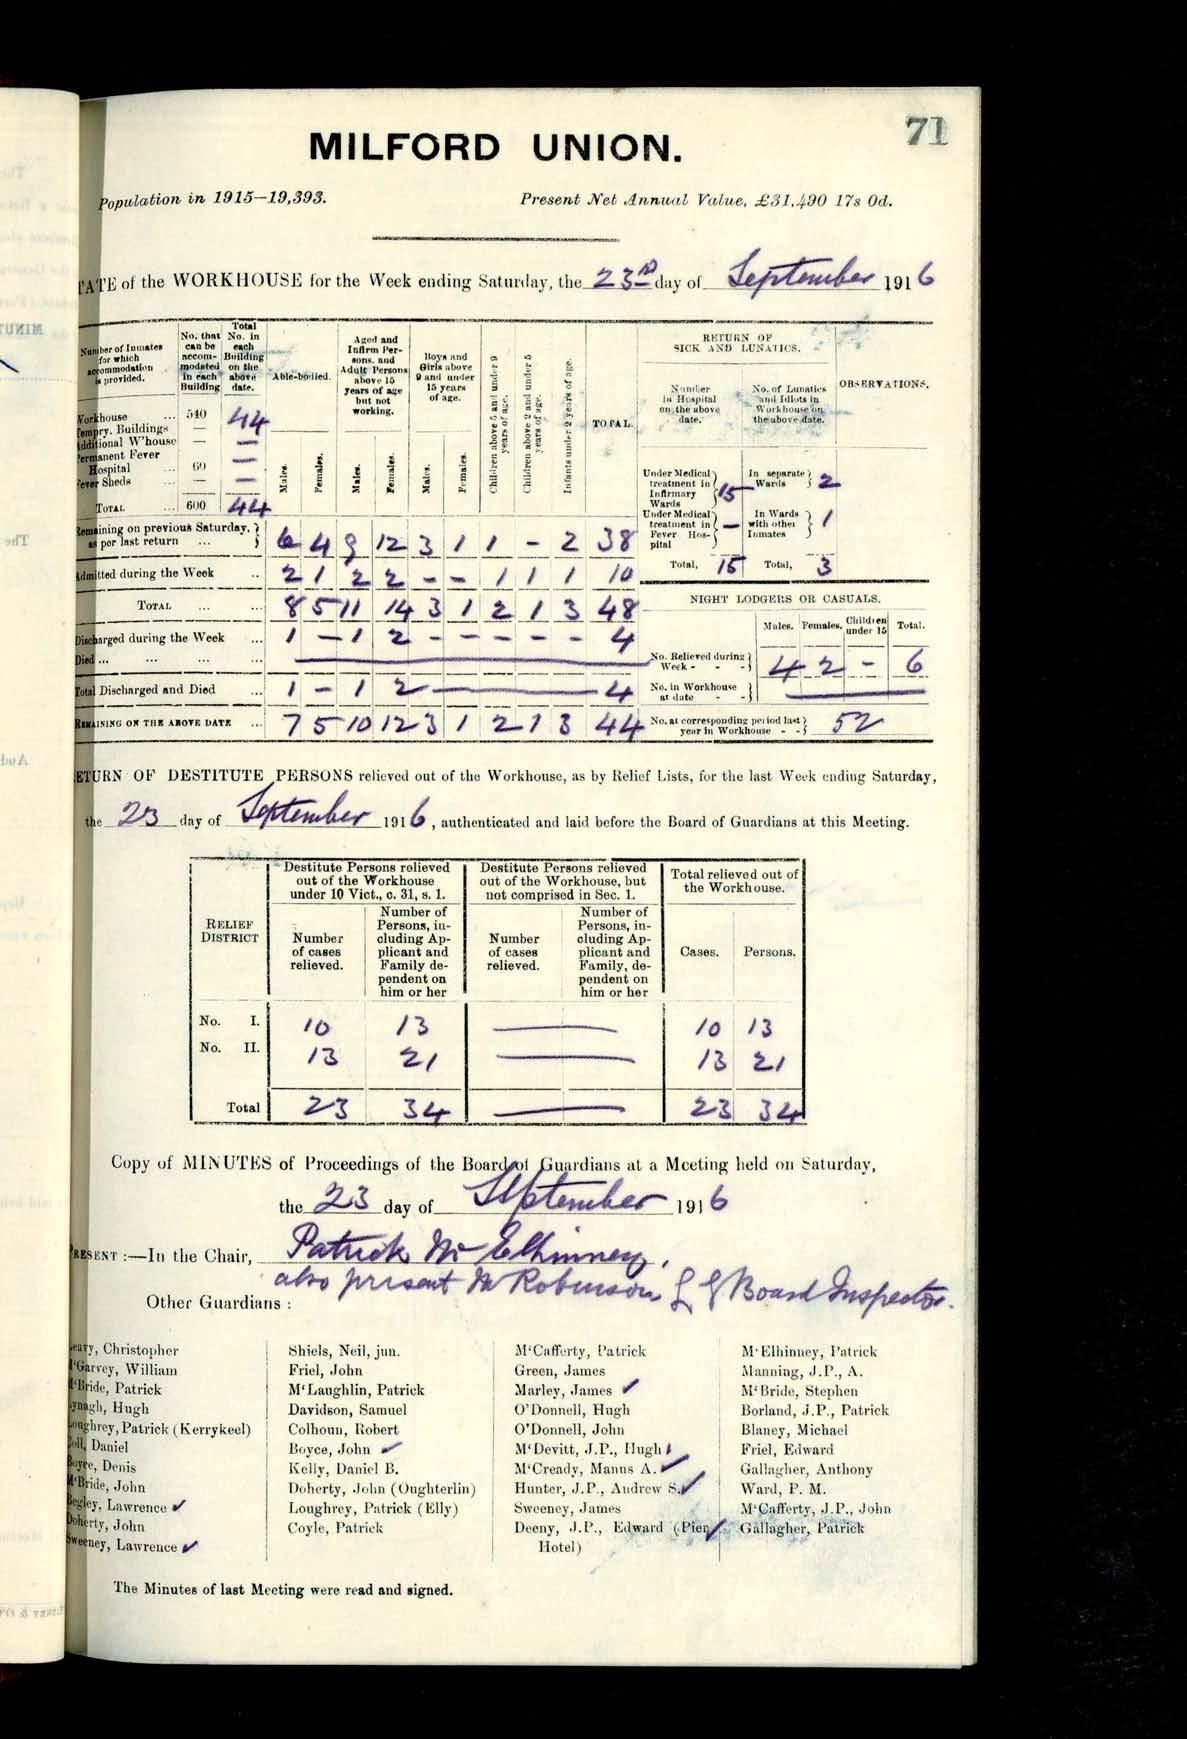 71
MILFORD UNION.
Population in 1915—19,393. Present Net Annual Value, £31,490 17s 0d.
TATE of the WORKHOUSE for the Week ending Saturday, the 23rd day of September 1916
Number of Inmates for which accommodation is provided. No. that can be accommodated in each Building Total No. in each Building on the above date. Able-bodied. Aged and Infirm Persons, and Adult Persons above 15 years of age but not working. Boys and Girls above 9 and under 15 years of age. Children above 5 and under 9 years of age. Children above 2 and under 5 years of age. Infants under 2 years of age. TOTAL. RETURN OF SICK AND LUNATICS. OBSERVATIONS.
Number in Hospital on the above date. No. of Lunatics and Idiots in Workhouse on the above date.
Males. Females. Males. Females. Males. Females.
Workhouse ... 540 44
Tempry. Buildings — —
Additional W'house —
Permanent Fever Hospital ... 60 —
Fever Sheds ... — —
TOTAL ... 600 44
Under Medical treatment in Infirmary Wards 15 In separate Wards 2
Under Medical treatment in Fever Hospital — In Wards with other Inmates 1
Total, 15 Total, 3
Remaining on previous Saturday, as per last return ... 6 4 9 12 3 1 1 - 2 38
Admitted during the Week .. 2 1 2 2 - - 1 1 1 10
TOTAL ... ... 8 5 11 14 3 1 2 1 3 48
Discharged during the Week ... 1 - 1 2 - - - - - 4
Died ... ... ... ... —
Total Discharged and Died ... 1 - 1 2 — 4
REMAINING ON THE ABOVE DATE ... 7 5 10 12 3 1 2 1 3 44
NIGHT LODGERS OR CASUALS.
Males. Females. Children under 15 Total.
No. Relieved during Week - - - 4 2 - 6
No. in Workhouse at date - - —
No. at corresponding period last year in Workhouse - - 52
ETURN OF DESTITUTE PERSONS relieved out of the Workhouse, as by Relief Lists, for the last Week ending Saturday,
the 23 day of September 1916, authenticated and laid before the Board of Guardians at this Meeting.
RELIEF DISTRICT Destitute Persons relieved out of the Workhouse under 10 Vict., c. 31, s. 1. Destitute Persons relieved out of the Workhouse, but not comprised in Sec. 1. Total relieved out of the Workhouse.
Number of cases relieved. Number of Persons, including Applicant and Family dependent on him or her Number of cases relieved. Number of Persons, including Applicant and Family, dependent on him or her Cases. Persons.
No. I. 10 13 — 10 13
No. II. 13 21 — 13 21
Total 23 34 — 23 34
Copy of MINUTES of Proceedings of the Board of Guardians at a Meeting held on Saturday,
the 23 day of September 1916
PRESENT :—In the Chair, Patrick Mc Elhinney,
also present Mr Robinson, L G Board Inspector.
Other Guardians :
eavy, Christopher
M'Garvey, William
M'Bride, Patrick
ynagh, Hugh
oughrey, Patrick (Kerrykeel)
oll, Daniel
Boyce, Denis
M'Bride, John
Begley, Lawrence ✓
Doherty, John
Sweeney, Lawrence ✓
Shiels, Neil, jun.
Friel, John
M'Laughlin, Patrick
Davidson, Samuel
Colhoun, Robert
Boyce, John ✓
Kelly, Daniel B.
Doherty, John (Oughterlin)
Loughrey, Patrick (Elly)
Coyle, Patrick
M'Cafferty, Patrick
Green, James
Marley, James ✓
O'Donnell, Hugh
O'Donnell, John
M'Devitt, J.P., Hugh ✓
M'Cready, Manus A. ✓
Hunter, J.P., Andrew S. ✓
Sweeney, James
Deeny, J.P., Edward (Pier ✓
Hotel)
M'Elhinney, Patrick
Manning, J.P., A.
M'Bride, Stephen
Borland, J.P., Patrick
Blaney, Michael
Friel, Edward
Gallagher, Anthony
Ward, P. M.
M'Cafferty, J.P., John
Gallagher, Patrick
The Minutes of last Meeting were read and signed.